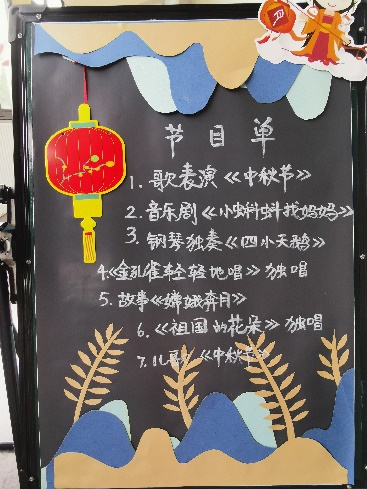 节目单
1. 歌表演《中秋节》
2. 音乐剧《小蝌蚪找妈妈》
3. 钢琴独奏《四小天鹅》
4.《金孔雀轻轻地唱》独唱
5. 故事《嫦娥奔月》
6.《祖国的花朵》独唱
7. 儿歌《中秋节》